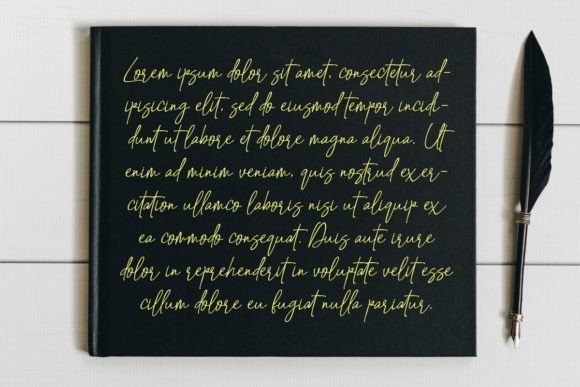 Lorem ipsum dolor sit amet, consectetur ad-
ipisicing elit, sed do eiusmod tempor incidi-
dunt ut labore et dolore magna aliqua. Ut
enim ad minim veniam, quis nostrud exer-
citation ullamco laboris nisi ut aliquip ex
ea commodo consequat. Duis aute irure
dolor in reprehenderit in voluptate velit esse
cillum dolore eu fugiat nulla pariatur.